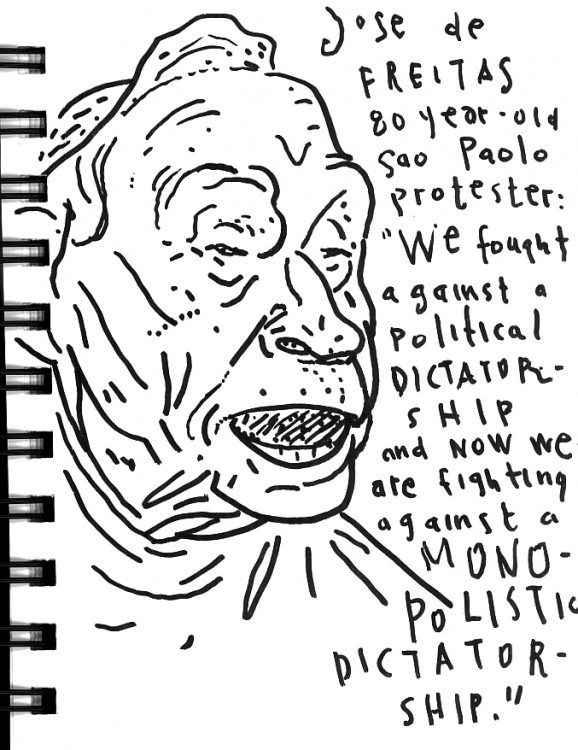 Jose de
FREITAS
80 year-old
Sao Paolo
protester:
"We fought
against a
political
DICTATOR-
SHIP
and NOW we
are fighting
against a
MONO-
POLISTIC
DICTATOR-
SHIP."